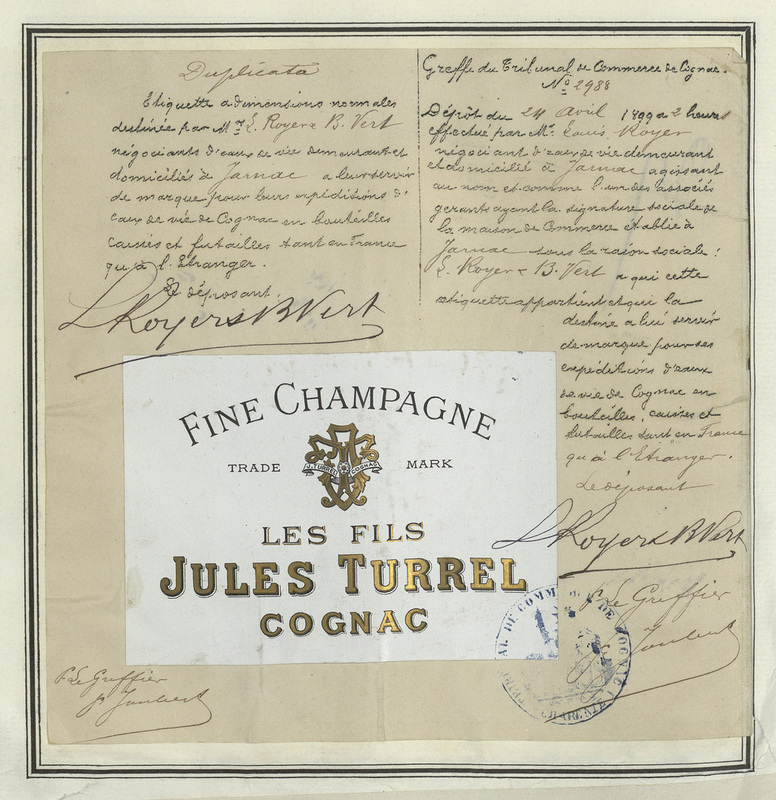 Duplicata
Etiquette à dimensions normales
destinée par Mrs L. Royer & B. Vert
négociants d'eaux de vie demeurant et
domiciliés à Jarnac a leur servir
de marque pour leurs expéditions d'
eaux de vie de Cognac en bouteilles
caisses et futailles tant en France
qu'à l'Etranger.
Le déposant
L Royer & B Vert
Greffe du Tribunal de Commerce de Cognac.
No 2988
Dépôt du 24 Avril 1899 à 2 heures
effectué par Mr Louis Royer
négociant d'eaux de vie demeurant
et domicilié à Jarnac agissant
au nom et comme l'un des associés
gerants ayant la signature sociale de
la maison de Commerce établie à
Jarnac sous la raison sociale :
L. Royer & B. Vert a qui cette
etiquette appartient et qui la
destine a lui servir
de marque pour ses
expéditions d'eaux
de vie de Cognac en
bouteilles, caisses et
futailles tant en France
qu'à l'Etranger.
Le déposant
L Royer & B Vert
FINE CHAMPAGNE
TRADE MARK
J. TURREL COGNAC
LES FILS
JULES TURREL
COGNAC
p Le Greffier
p Joubert
p Le Greffier
Joubert
DE COMMERCE DE COGNAC
CHARENTE